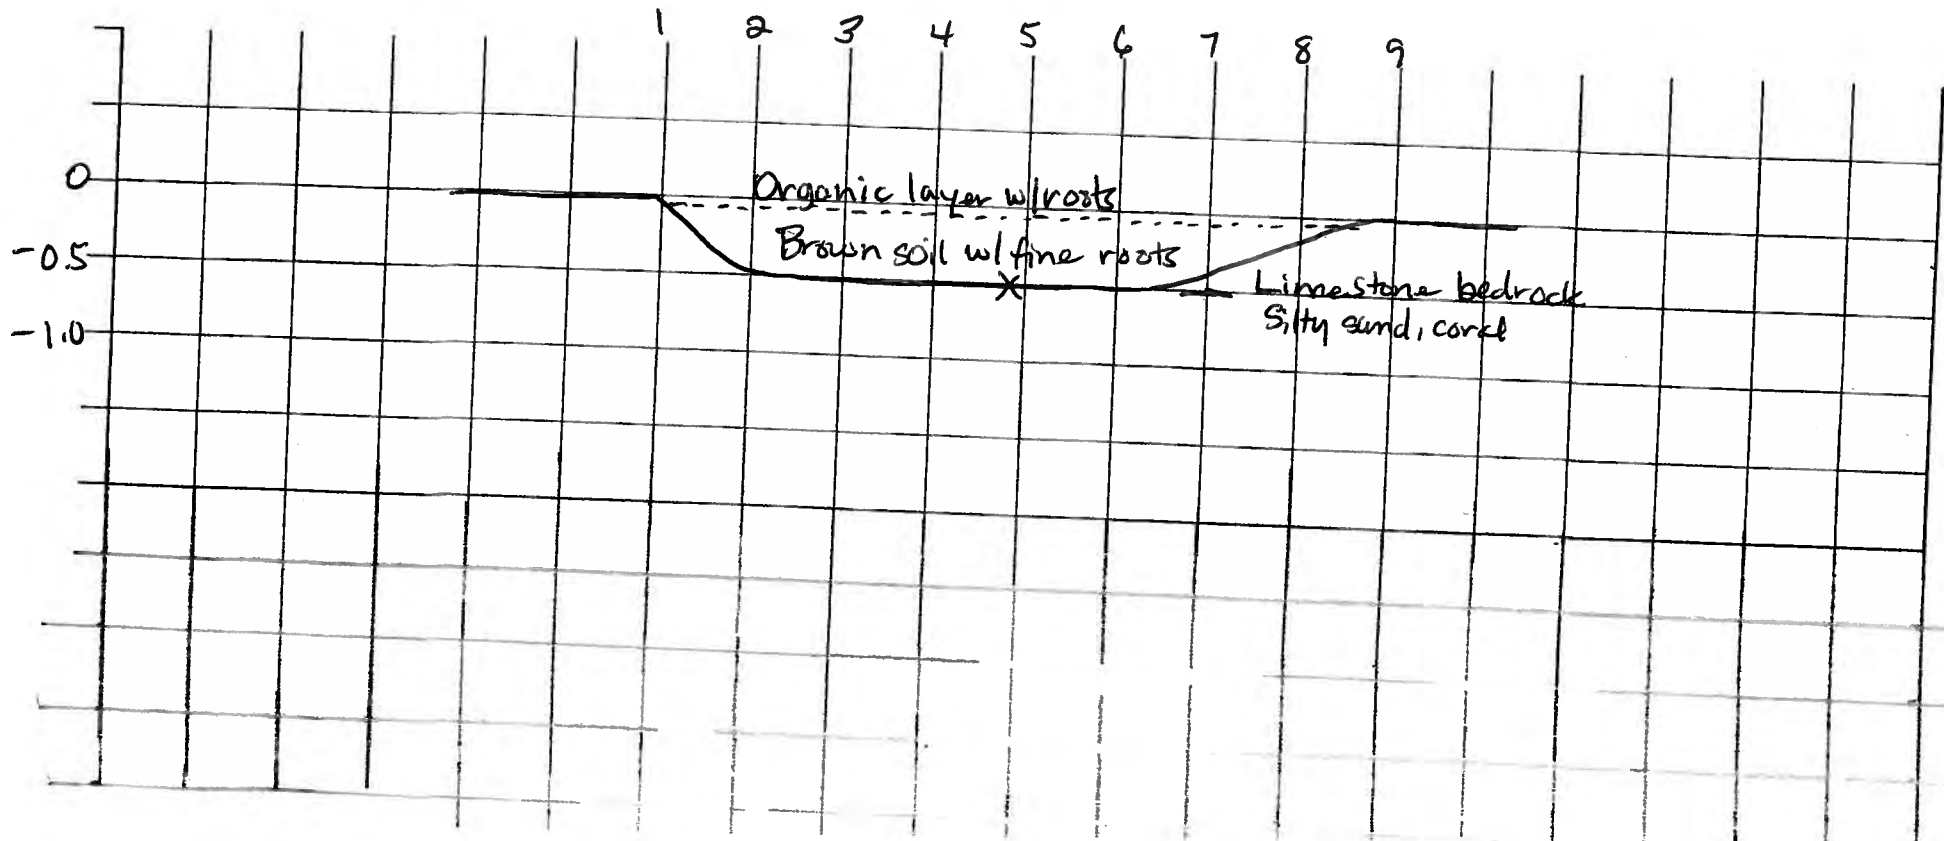 1 2 3 4 5 6 7 8 9
0
Organic layer w/roots
-0.5
Brown soil w/ fine roots
X
Limestone bedrock
-1.0
Silty sand, coral